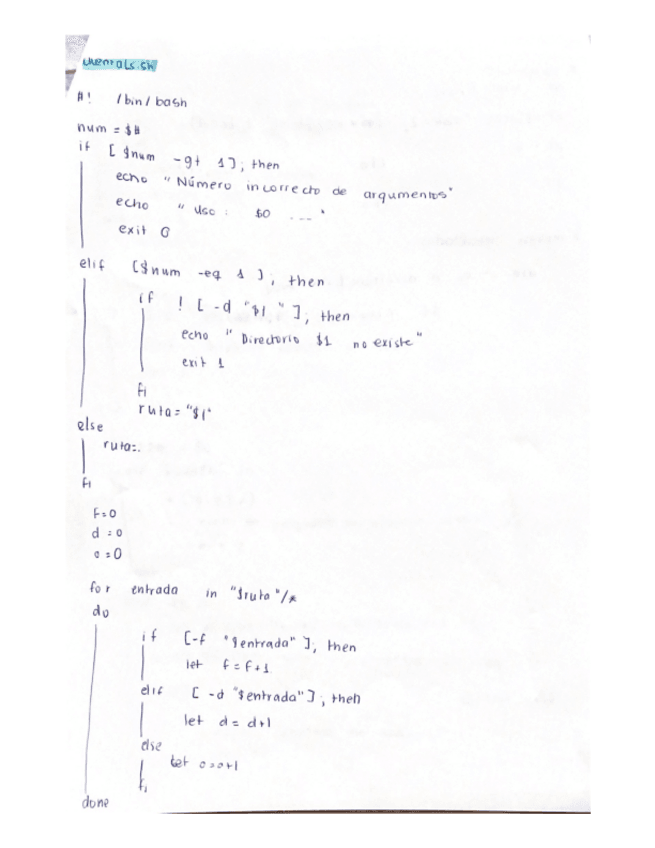 cuentals.sh
#! /bin/bash
num = $#
if [ $num -gt 1 ]; then
echo "Número incorrecto de argumentos"
echo "Uso: $0 ---"
exit 0
elif [$num -eq 1 ]; then
if ! [ -d "$1" ]; then
echo "Directorio $1 no existe"
exit 1
fi
ruta="$1"
else
ruta=.
fi
f=0
d=0
o=0
for entrada in "$ruta"/*
do
if [-f "$entrada" ]; then
let f=f+1
elif [ -d "$entrada"]; then
let d=d+1
else
let o=o+1
fi
done